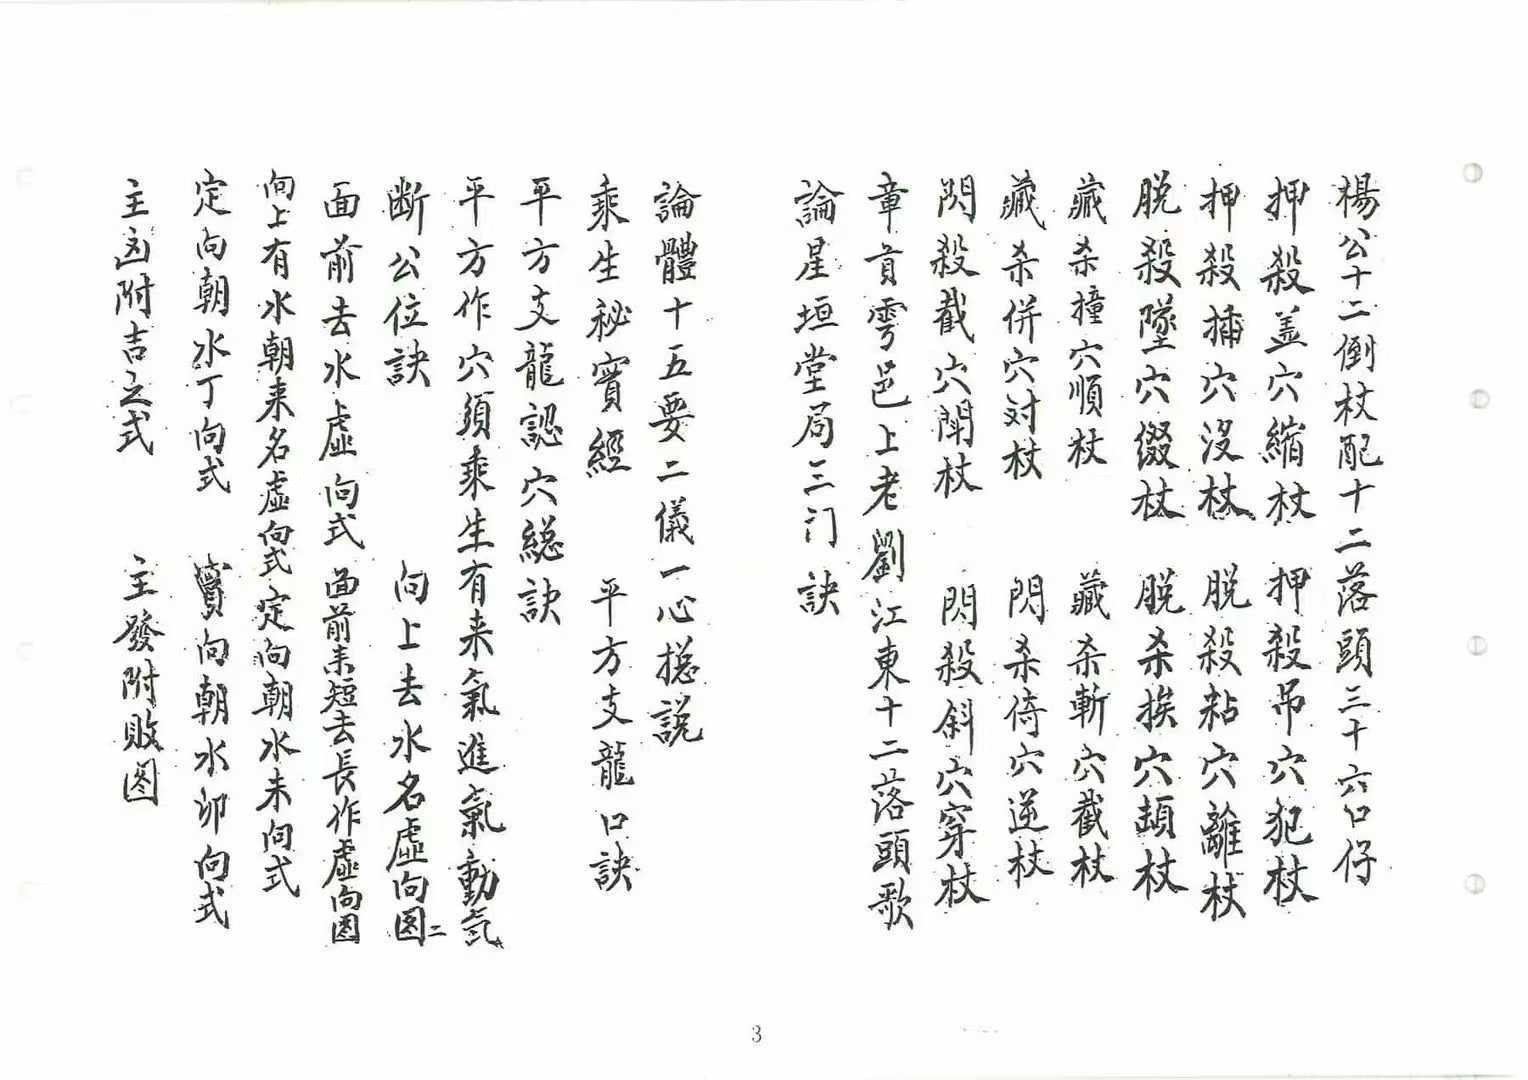 楊公十二倒杖配十二落頭三十六口仔
押殺盖穴縮杖 押殺吊穴犯杖
押殺插穴没杖 脱殺粘穴離杖
脱殺墜穴綴杖 脱杀挨穴頓杖
藏杀撞穴順杖 藏杀斬穴截杖
藏杀併穴对杖 閃杀倚穴逆杖
閃殺截穴開杖 閃殺斜穴穿杖
章貢雩邑上老劉江東十二落頭歌
論星垣堂局三门訣
論體十五要二儀一心摠説
乘生秘寳經 平方支龍口訣
平方支龍認穴緫訣
平方作穴須乘生有来氣進氣動氣
断公位訣 向上去水名虚向图二
面前去水虚向式 面前来短去長作虚向图
向上有水朝来名虚向式 定向朝水未向式
定向朝水丁向式 實向朝水卯向式
主凶附吉之式 主發附敗图
3